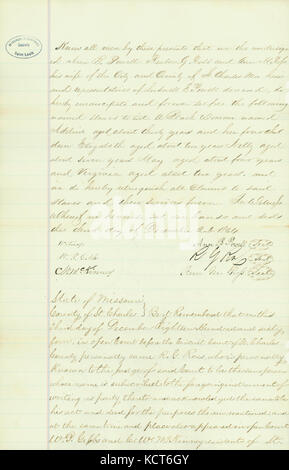 Know all men by these presents that we the undersigned
Ann B. Powell Reuben G. Ross and Ann M. Ross
his wife of the City and County of St Charles Mo heirs
and representatives of Ludwell E Powell deceased, do
hereby emancipate and forever set free the following
named slaves to wit A Black Woman named
Adeline aged about thirty years and her four children
Elizabeth aged about ten years Nelly aged
about seven years May aged about four years
and Virginia aged about two years, and
we do hereby relinquish all claims to said
slaves and their services forever. In Testimony
Whereof we hereunto set our hands and seals
this third day of December A.D. 1864
Ann B. Powell (Seal)
R G Ross (Seal)
Ann M. Ross (Seal)
State of Missouri
County of St. Charles } Be it Remembered that on this
Third day of December Eighteen Hundred and sixty
four in open Court before the Circuit Court of St. Charles
County personally came R. G. Ross, who is personally
known to the judge of said Court to be the same person
whose name is subscribed to the foregoing instrument of
writing as party thereto and acknowledged the same to be
his act and deed for the purposes therein mentioned and
at the same time and place also appeared in open Court
W. P. Gibbs and W. McKenny resident of St.
alamy